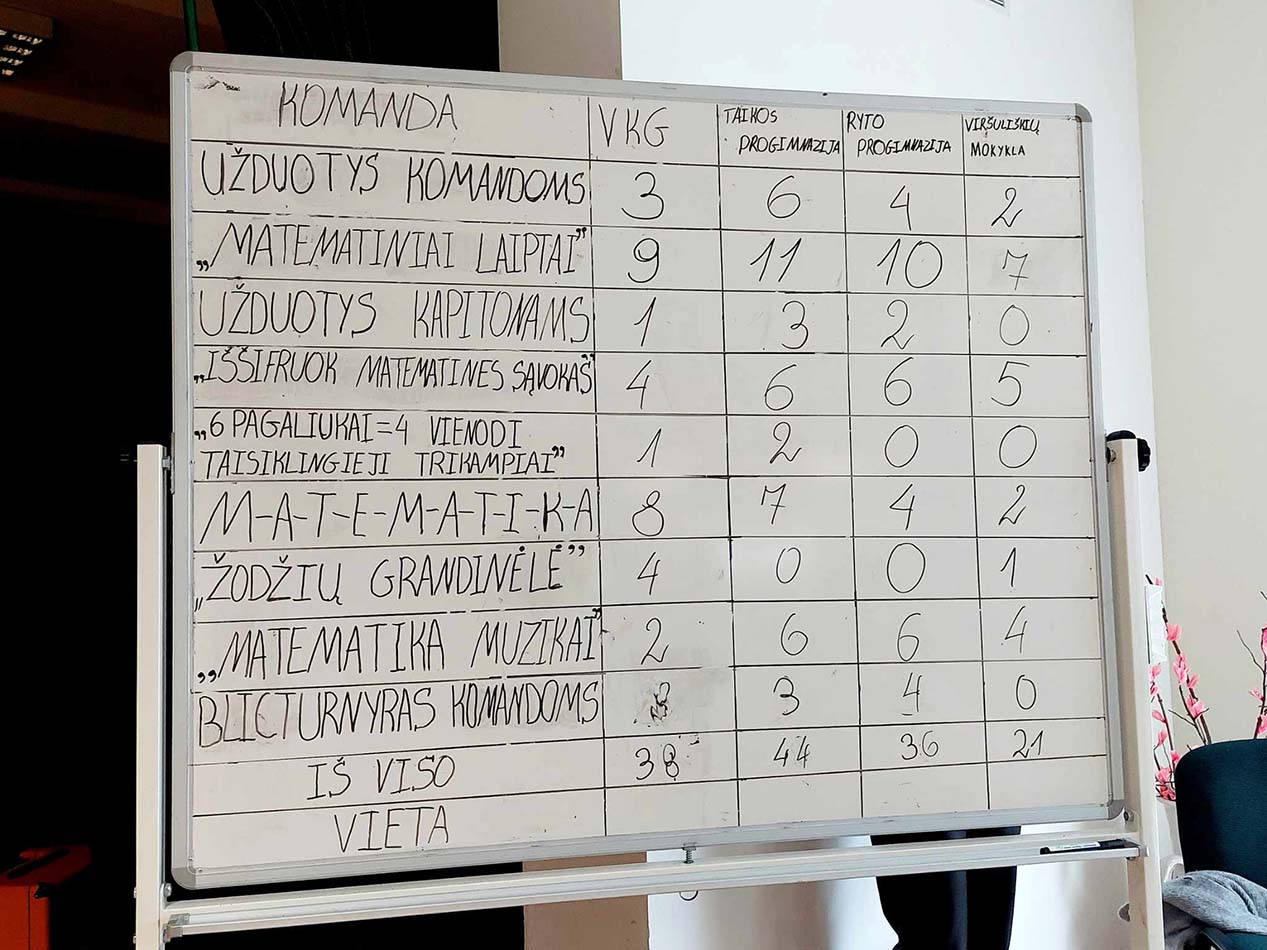 KOMANDA VKG TAIKOS PROGIMNAZIJA RYTO PROGIMNAZIJA VIRŠULIŠKIŲ MOKYKLA
UŽDUOTYS KOMANDOMS 3 6 4 2
„MATEMATINIAI LAIPTAI” 9 11 10 7
UŽDUOTYS KAPITONAMS 1 3 2 0
„IŠŠIFRUOK MATEMATINES SĄVOKAS” 4 6 6 5
„6 PAGALIUKAI=4 VIENODI
TAISIKLINGIEJI TRIKAMPIAI” 1 2 0 0
M-A-T-E-M-A-T-I-K-A 8 7 4 2
„ŽODŽIŲ GRANDINĖLĖ” 4 0 0 1
„MATEMATIKA MUZIKAI” 2 6 6 4
BLICTURNYRAS KOMANDOMS 3 4 0
IŠ VISO 38 44 36 21
VIETA